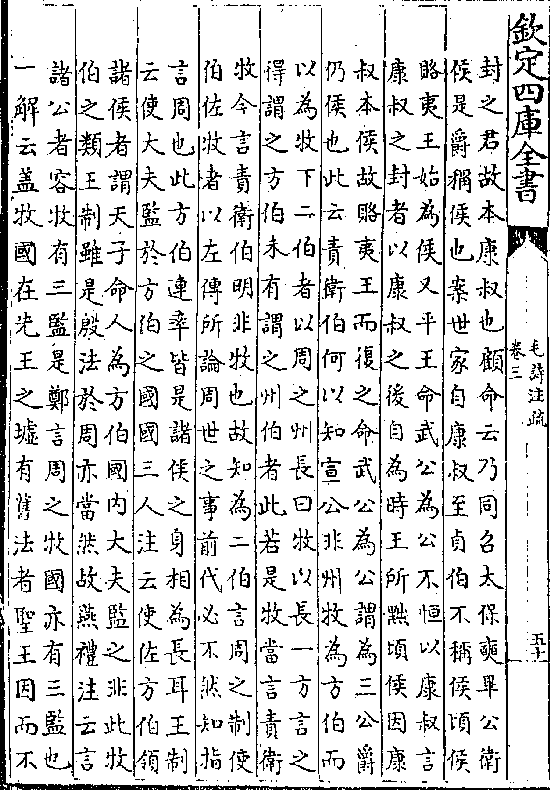 欽定四庫全書
毛詩注疏
卷三
五十
封之君故本康叔也顧命云乃同召太保奭畢公衛
侯是爵稱侯也案世家自康叔至貞伯不稱侯頃侯
賂夷王始為侯又平王命武公為公不恒以康叔言
康叔之封者以康叔之後自為時王所黜頃侯因康
叔本侯故賂夷王而復之命武公為公謂為三公爵
仍侯也此云責衛伯何以知宣公非州牧為方伯而
以為牧下二伯者以周之州長曰牧以長一方言之
得謂之方伯未有謂之州伯者此若是牧當言責衛
牧今言責衛伯明非牧也故知為二伯言周之制使
伯佐牧者以左傳所論周世之事前代必不然知指
言周也此方伯連率皆是諸侯之身相為長耳王制
云使大夫監於方伯之國國三人注云使佐方伯領
諸侯者謂天子命人為方伯國內大夫監之非此牧
伯之類王制雖是殷法於周亦當然故燕禮注云言
諸公者容牧有三監是鄭言周之牧國亦有三監也
一解云蓋牧國在先王之墟有舊法者聖王因而不